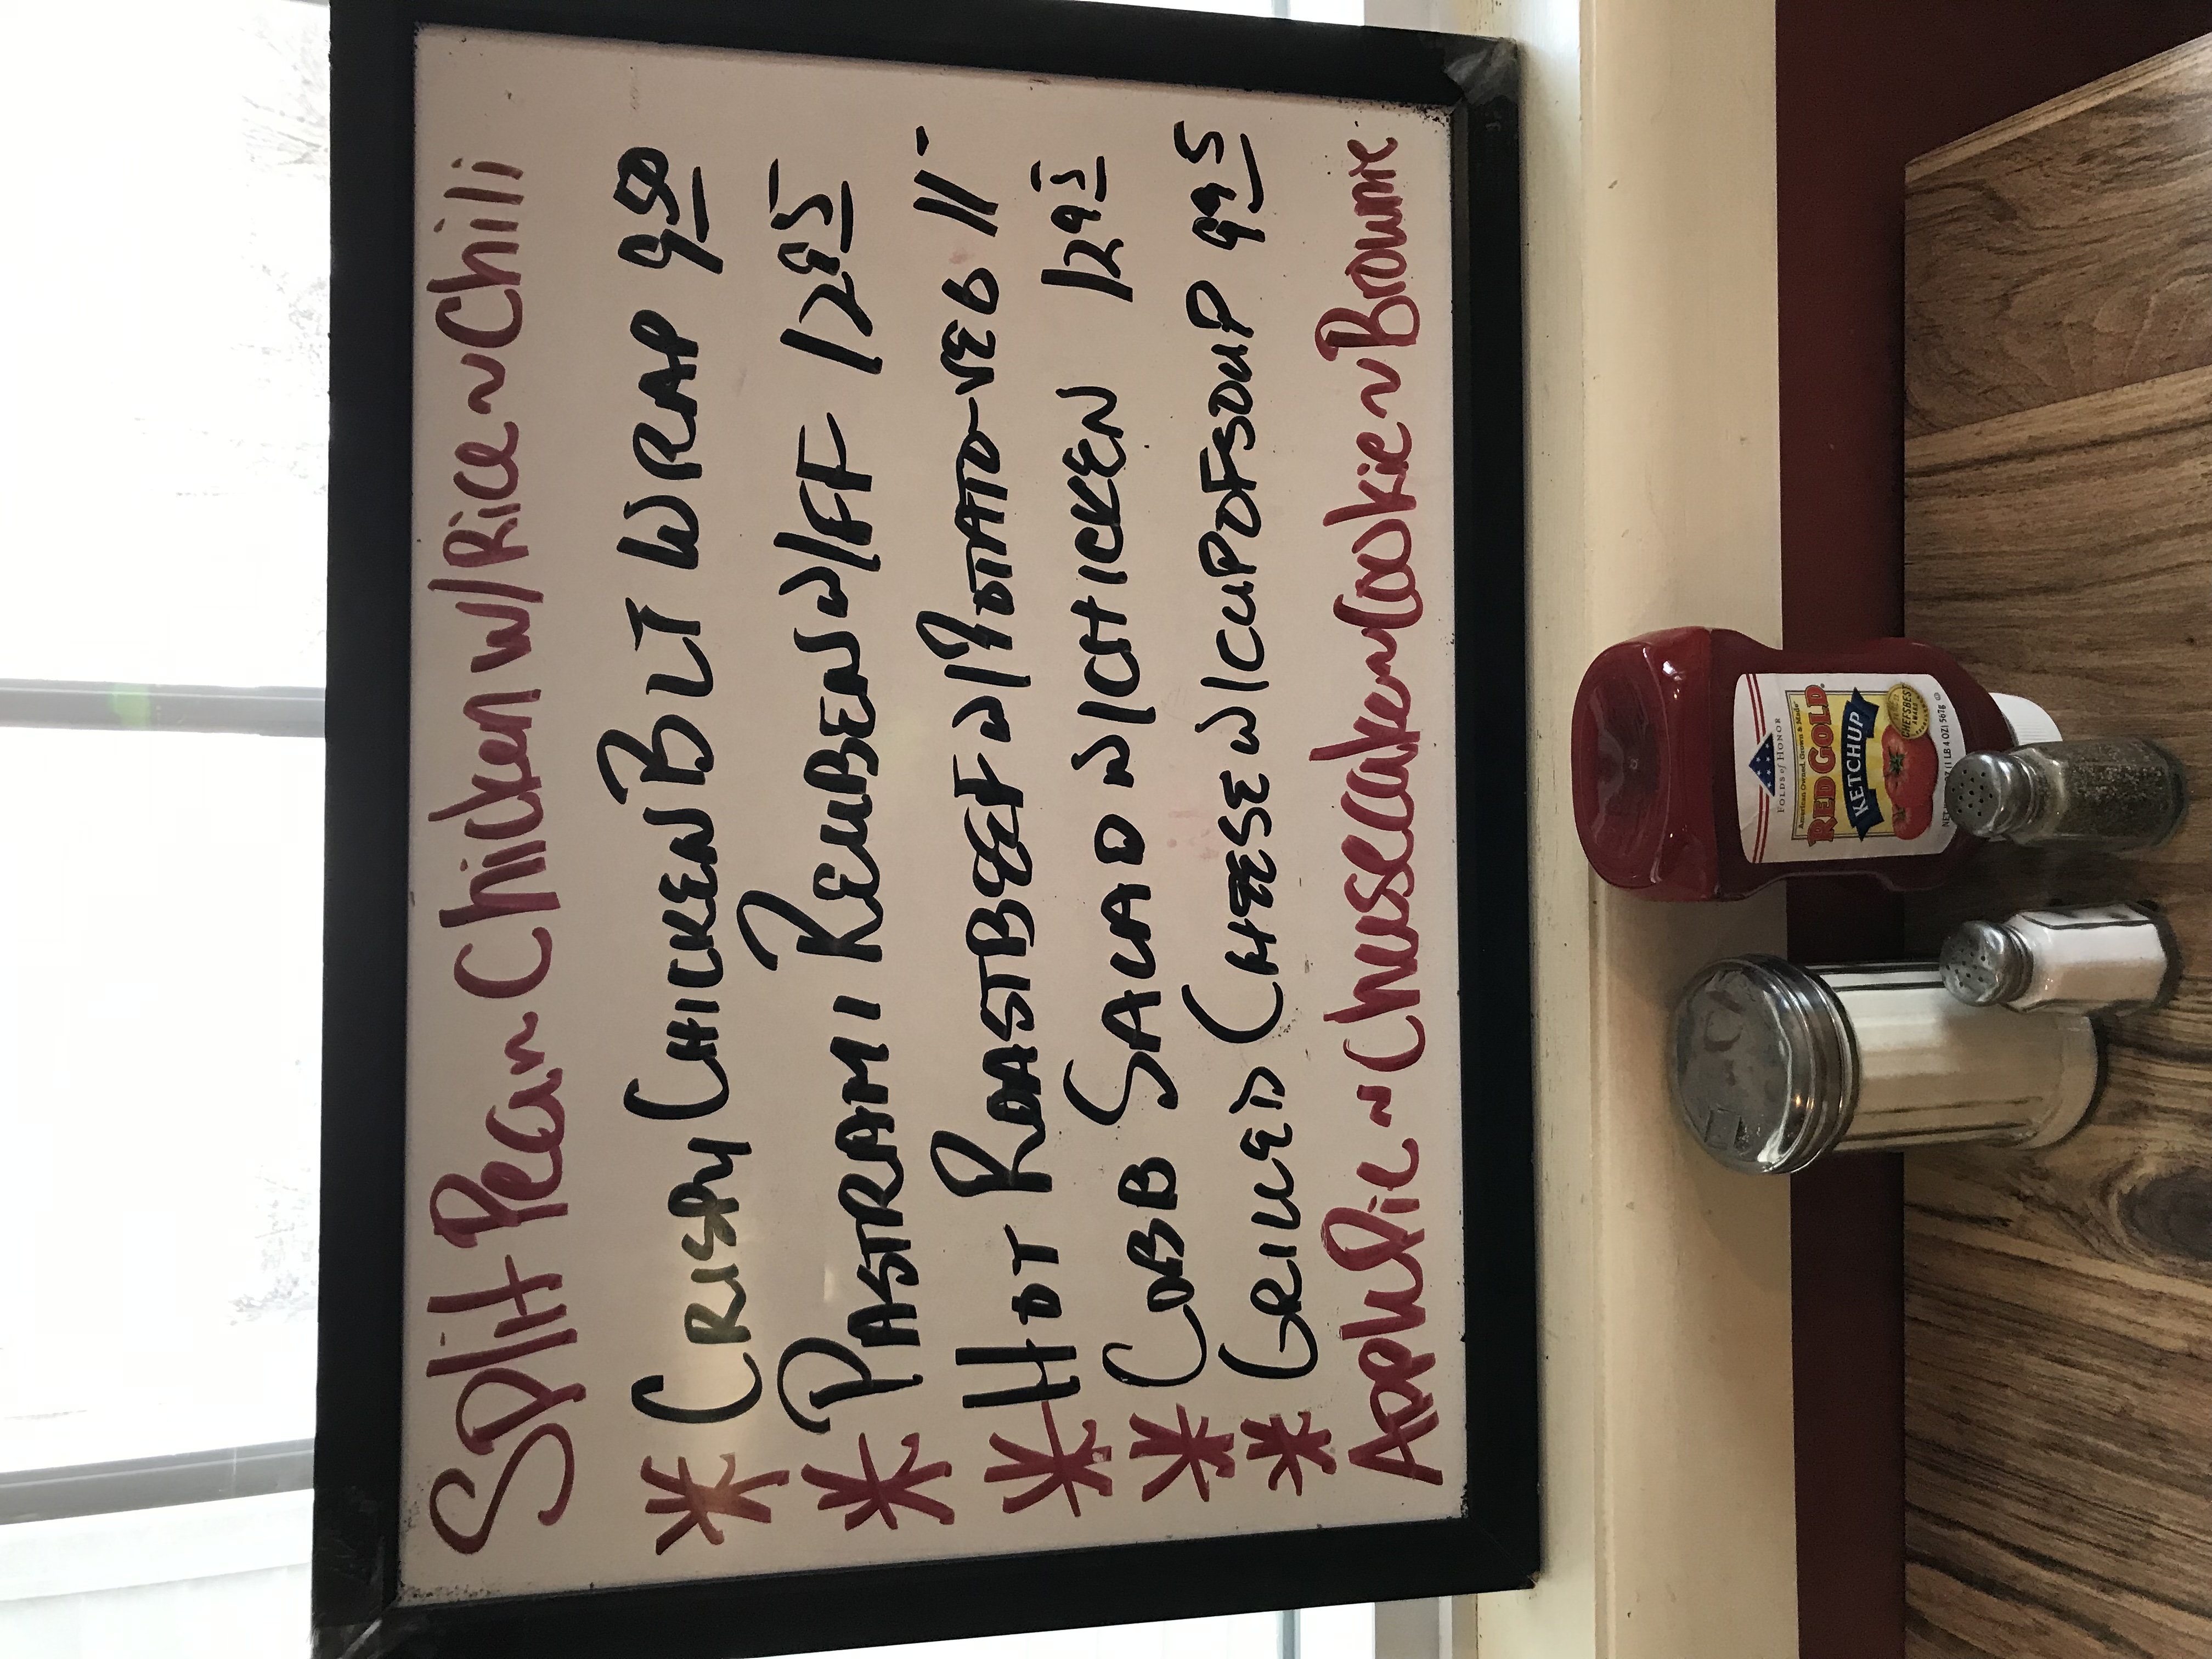 Split Pea ~ Chicken w/Rice ~ Chili
* CRISPY CHICKEN BLT WRAP 9 50
* PASTRAMI REUBEN W/FF 12 95
* HOT ROAST BEEF W/POTATO-VEG 11-
* COBB SALAD W/CHICKEN 12 95
* GRILLED CHEESE W/CUP OF SOUP 9 95
Apple Pie ~ Cheesecake ~ Cookie ~ Brownie
FOLDS of HONOR
American Owned, Grown & Made
RED GOLD
KETCHUP
CHEFSBEST
AWARD
(1 LB 4 OZ) 567g